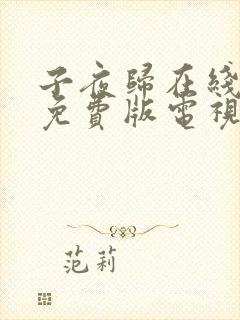 子夜歸在綫
免費版電視
范莉